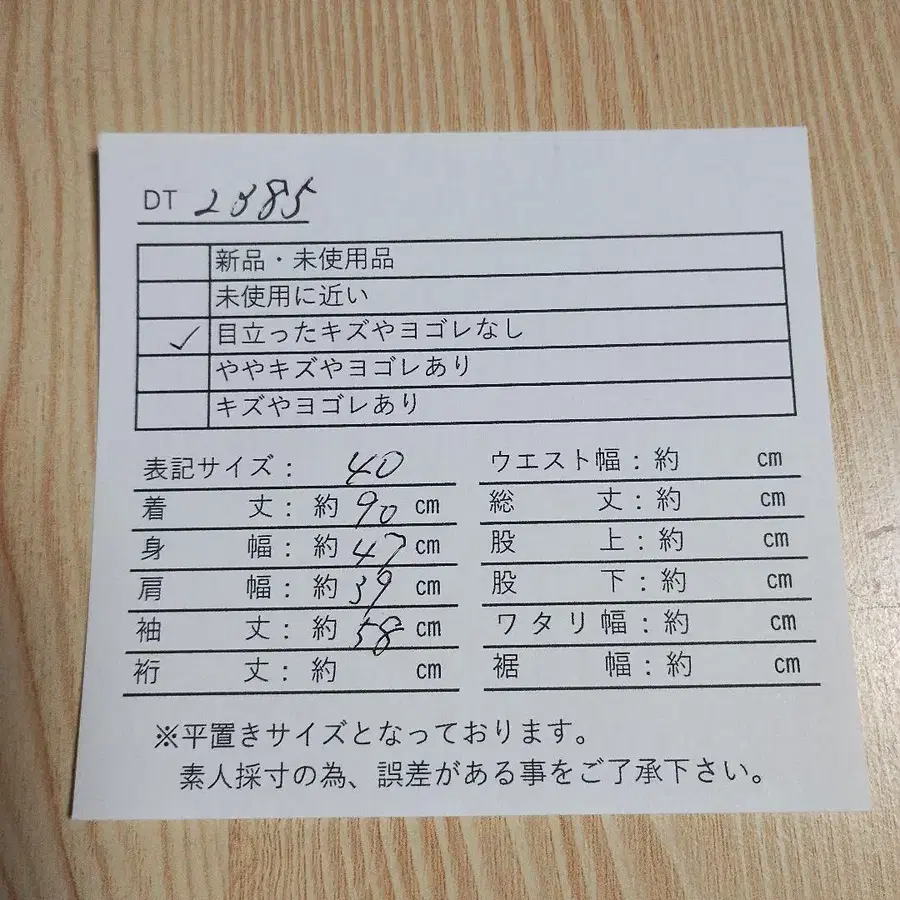 DT 2385
新品・未使用品
未使用に近い
✓ 目立ったキズやヨゴレなし
ややキズやヨゴレあり
キズやヨゴレあり
表記サイズ： 40
着丈：約 90 cm
身幅：約 47 cm
肩幅：約 39 cm
袖丈：約 58 cm
裄丈：約 cm
ウエスト幅：約 cm
総丈：約 cm
股上：約 cm
股下：約 cm
ワタリ幅：約 cm
裾幅：約 cm
※平置きサイズとなっております。
素人採寸の為、誤差がある事をご了承下さい。